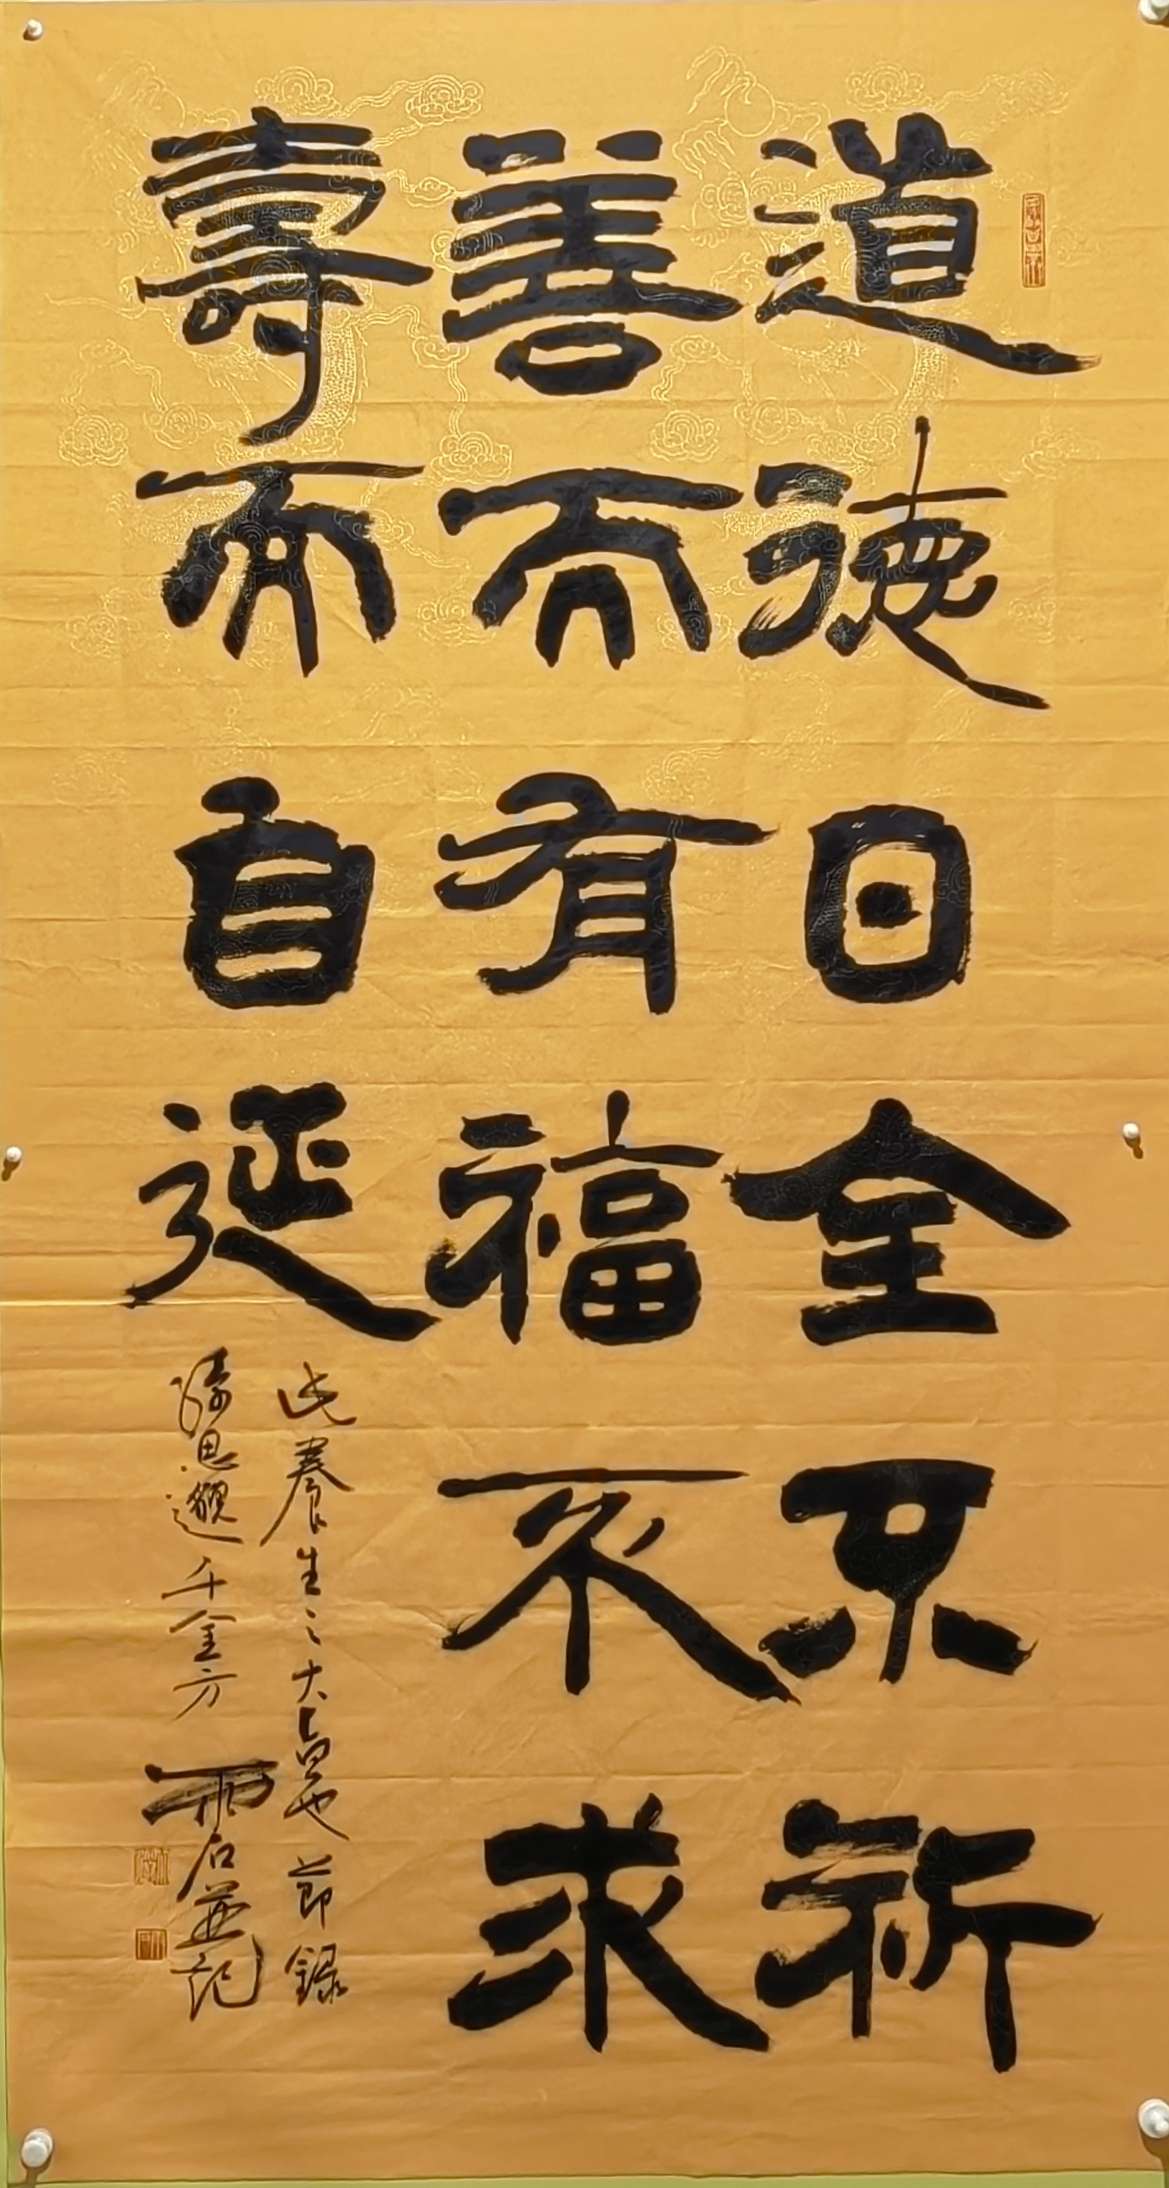 道德日全不祈
善而有福不求
壽而自延
此養生之大旨也節錄
孫思邈千金方雨石並記